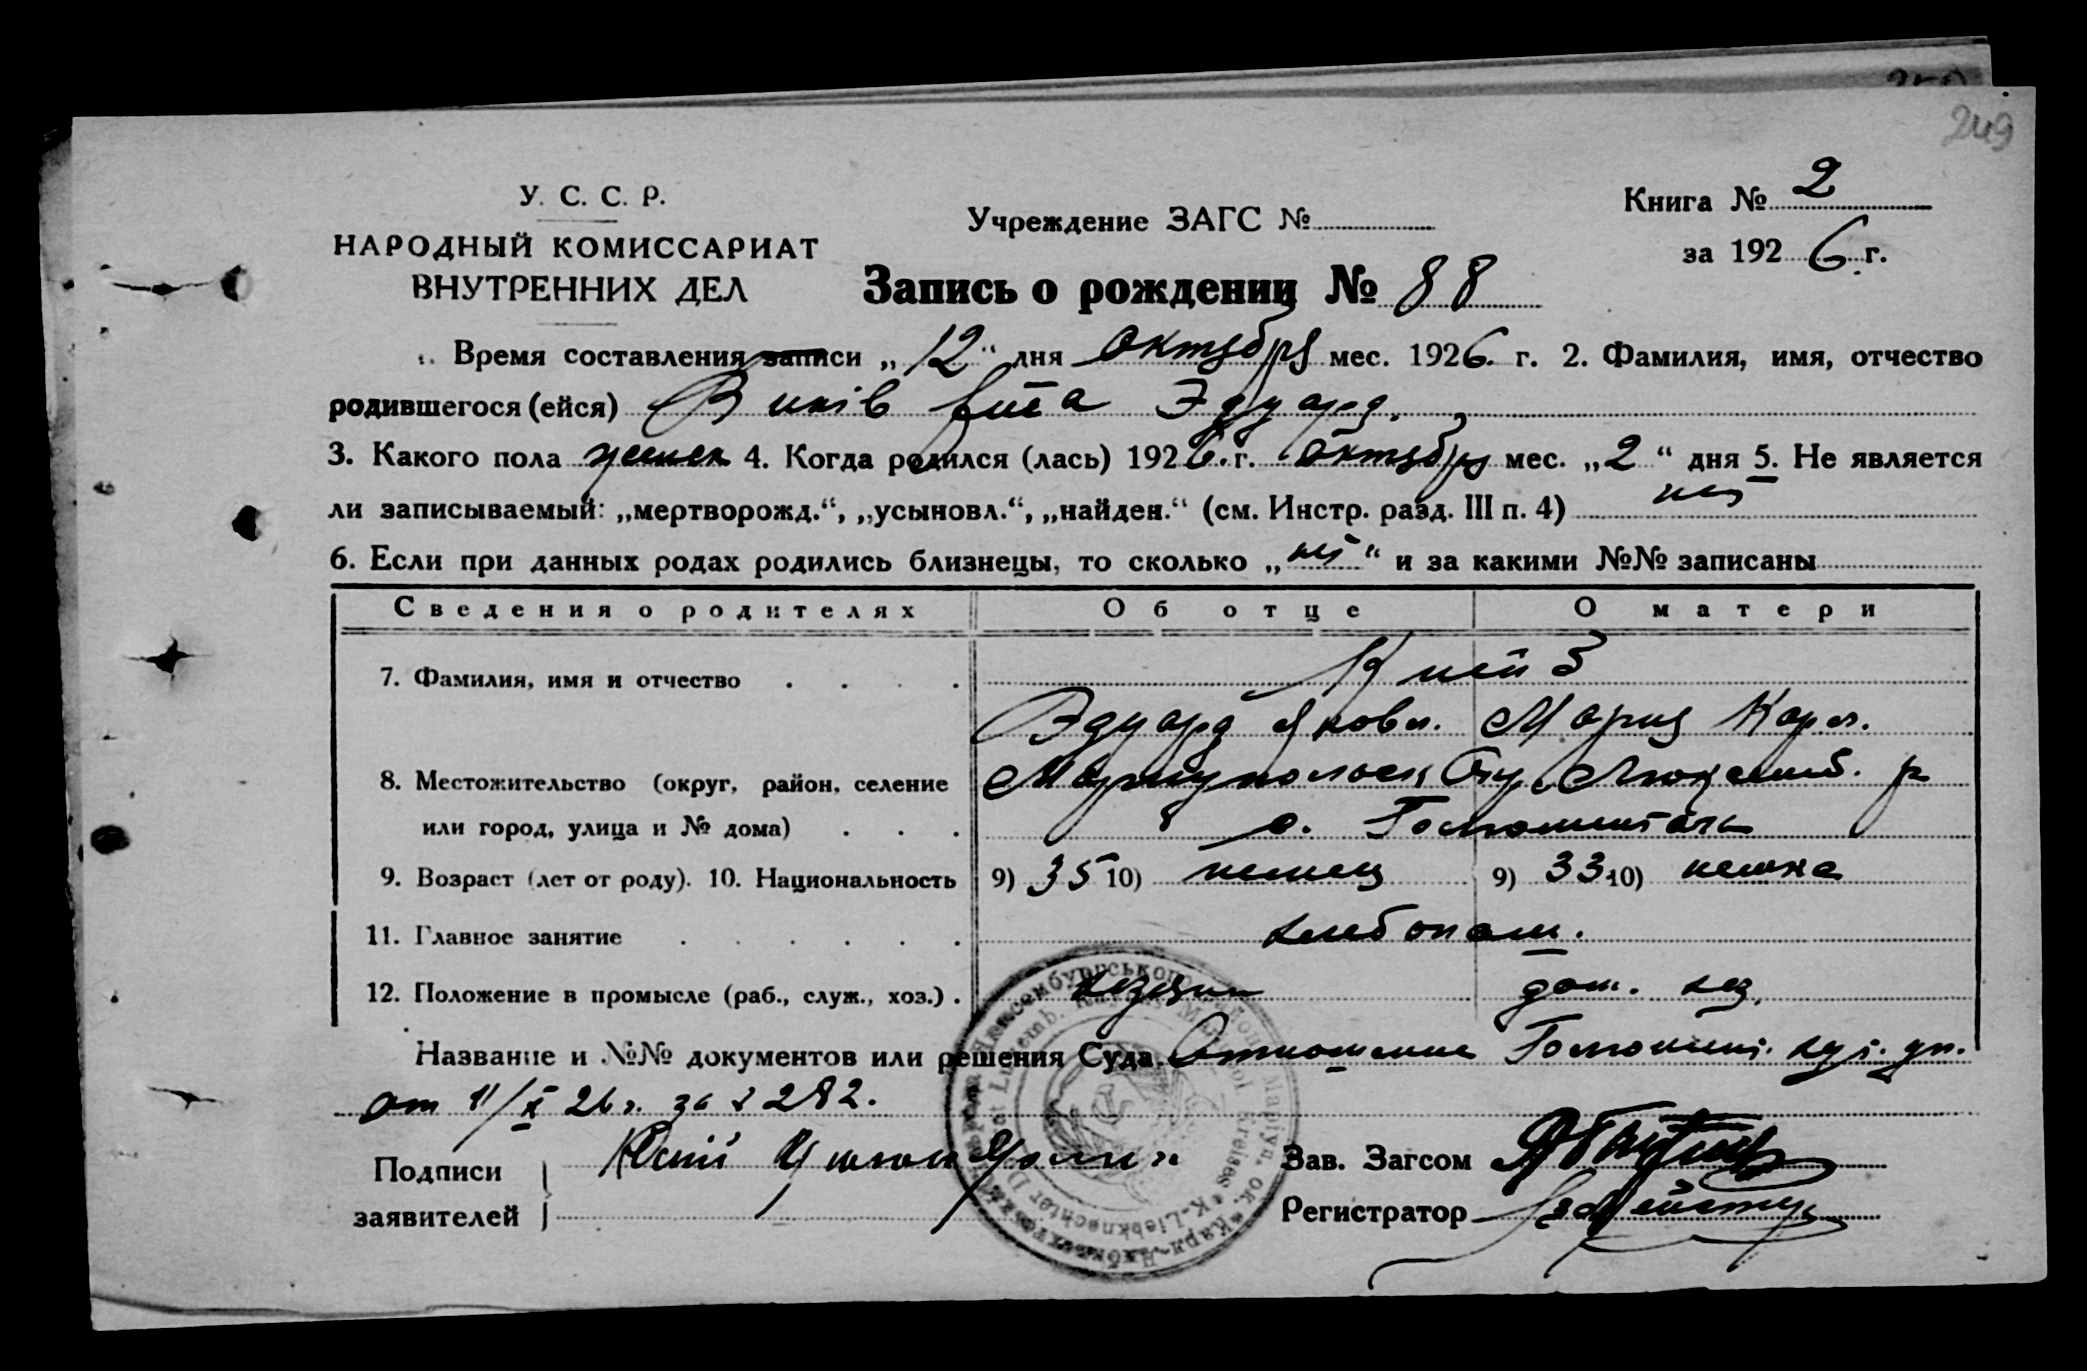 249
У. С. С. Р.
НАРОДНЫЙ КОМИССАРИАТ
ВНУТРЕННИХ ДЕЛ
Учреждение ЗАГС №
Книга № 2
за 1926 г.
Запись о рождении № 88
Время составления записи „12“ дня октября мес. 1926 г. 2. Фамилия, имя, отчество
родившегося (ейся) Эдуард.
3. Какого пола женск 4. Когда родился (лась) 1926. г. октября мес. „2“ дня 5. Не является
ли записываемый: „мертворожд.“, „усыновл.“, „найден.“ (см. Инстр. разд. III п. 4) нет
6. Если при данных родах родились близнецы, то сколько „нет“ и за какими №№ записаны
Сведения о родителях Об отце О матери
7. Фамилия, имя и отчество
Эдуард Яковл. Мария Карл.
8. Местожительство (округ, район, селение Мариупольск Окр. Люксемб. р
или город, улица и № дома) с.
9. Возраст (лет от роду). 10. Национальность 9) 35 10) немец 9) 33 10) немка
11. Главное занятие хлебопаш.
12. Положение в промысле (раб., служ., хоз.) хозяин дом. хоз.
Название и №№ документов или решения Суда. Отношение
от 11/X 26 г. за № 282.
Подписи
заявителей
Зав. Загсом
Регистратор